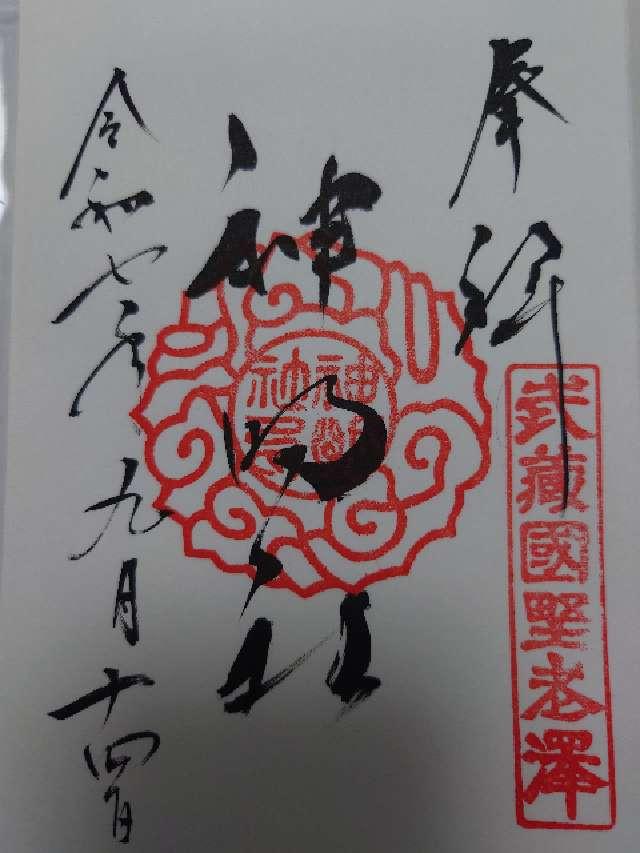 奉拝
武藏國野老澤
神明社
神明社印
令和七年九月十四日